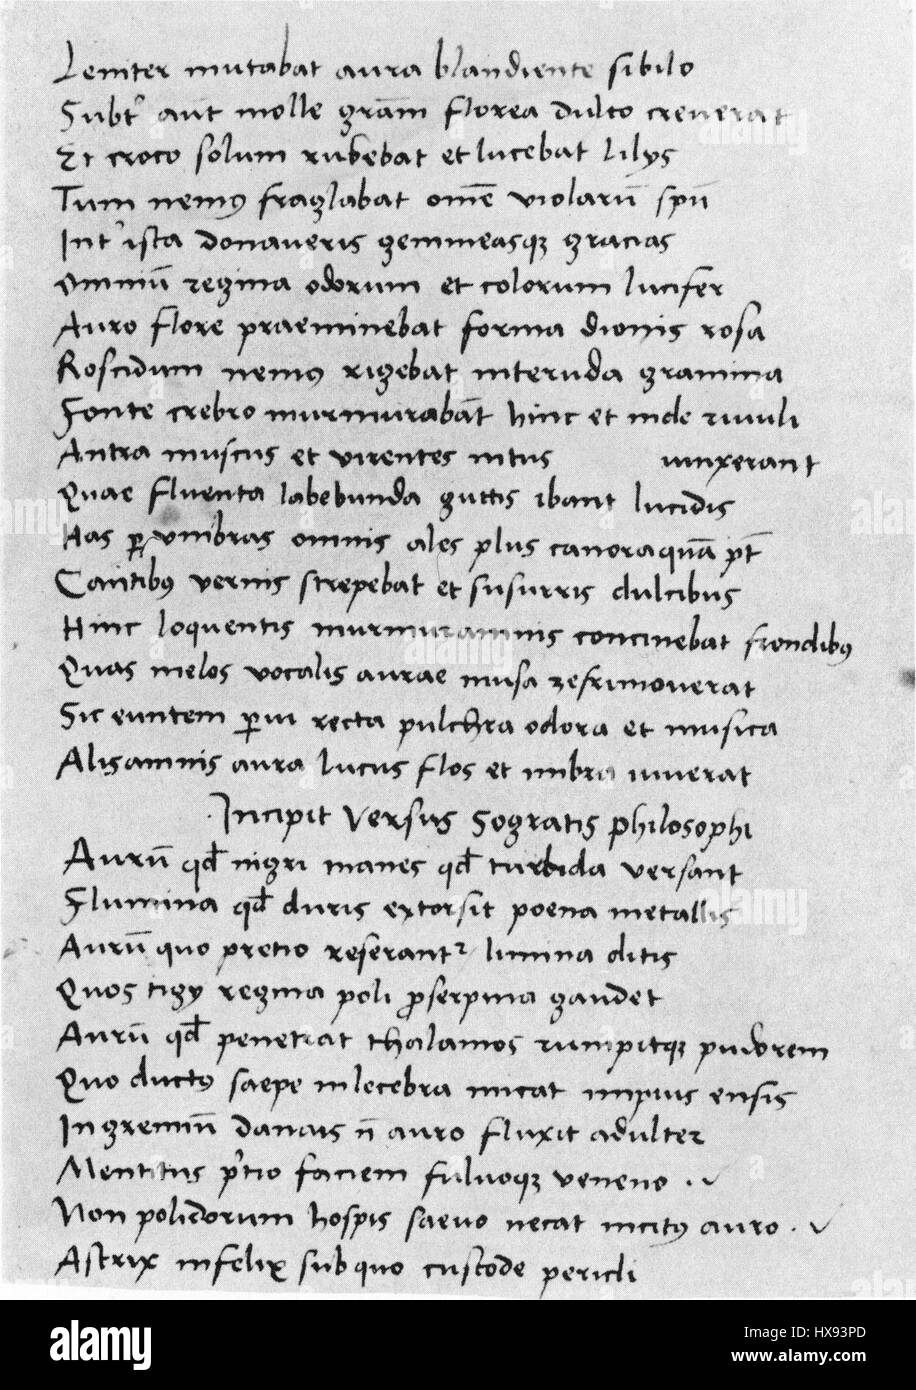 Leniter mutabat aura blandiente sibilo
Subt' aūt molle grām florea dulto creverat
Et croco solum rubebat et lucebat lilys
Tum nemus fraglabat omē violarū spū
Int' ista donaveris gemmeasqꝫ gracias
Omniū regina odorum et colorum lucifer
Auro flore praeminebat forma dionis rosa
Roscidum nemus rigebat interuda gramina
Fonte crebro murmurabāt hinc et inde rivuli
Antra muscus et virentes intus vinxerant
Quae fluenta labebunda guttis ibant lucidis
Has ꝑ umbras omnis ales plus canoraquā p̄t
Cantibus vernis strepebat et susurris dulcibus
Hinc loquentis murmur amnis concinebat frondibus
Quas melos vocalis aurae musa zefrimoverat
Sic euntem ꝑ vi recta pulchra odora et musica
Alis amnis aura lucus flos et umbra iuverat
Incipit Versus Sogratis philosophi
Aurū qđ nigri manes qđ turbida versant
Flumina qđ duris extorsit poena metallis
Aurū quo pretio reserantr lumina ditis
Quos tigy regina poli ꝓserpina gaudet
Aurū qđ penetrat thalamos rumpitqꝫ pudorem
Quo ductus saepe inlecebra micat impius ensis
In gremiū danais ñ auro fluxit adulter
Mentitus p'tio faciem fulvoqꝫ veneno
Non polidorum hospis saevo necat incitus auro
Astrix infelix sub quo custode pericli
alamy
HX93PD
www.alamy.com